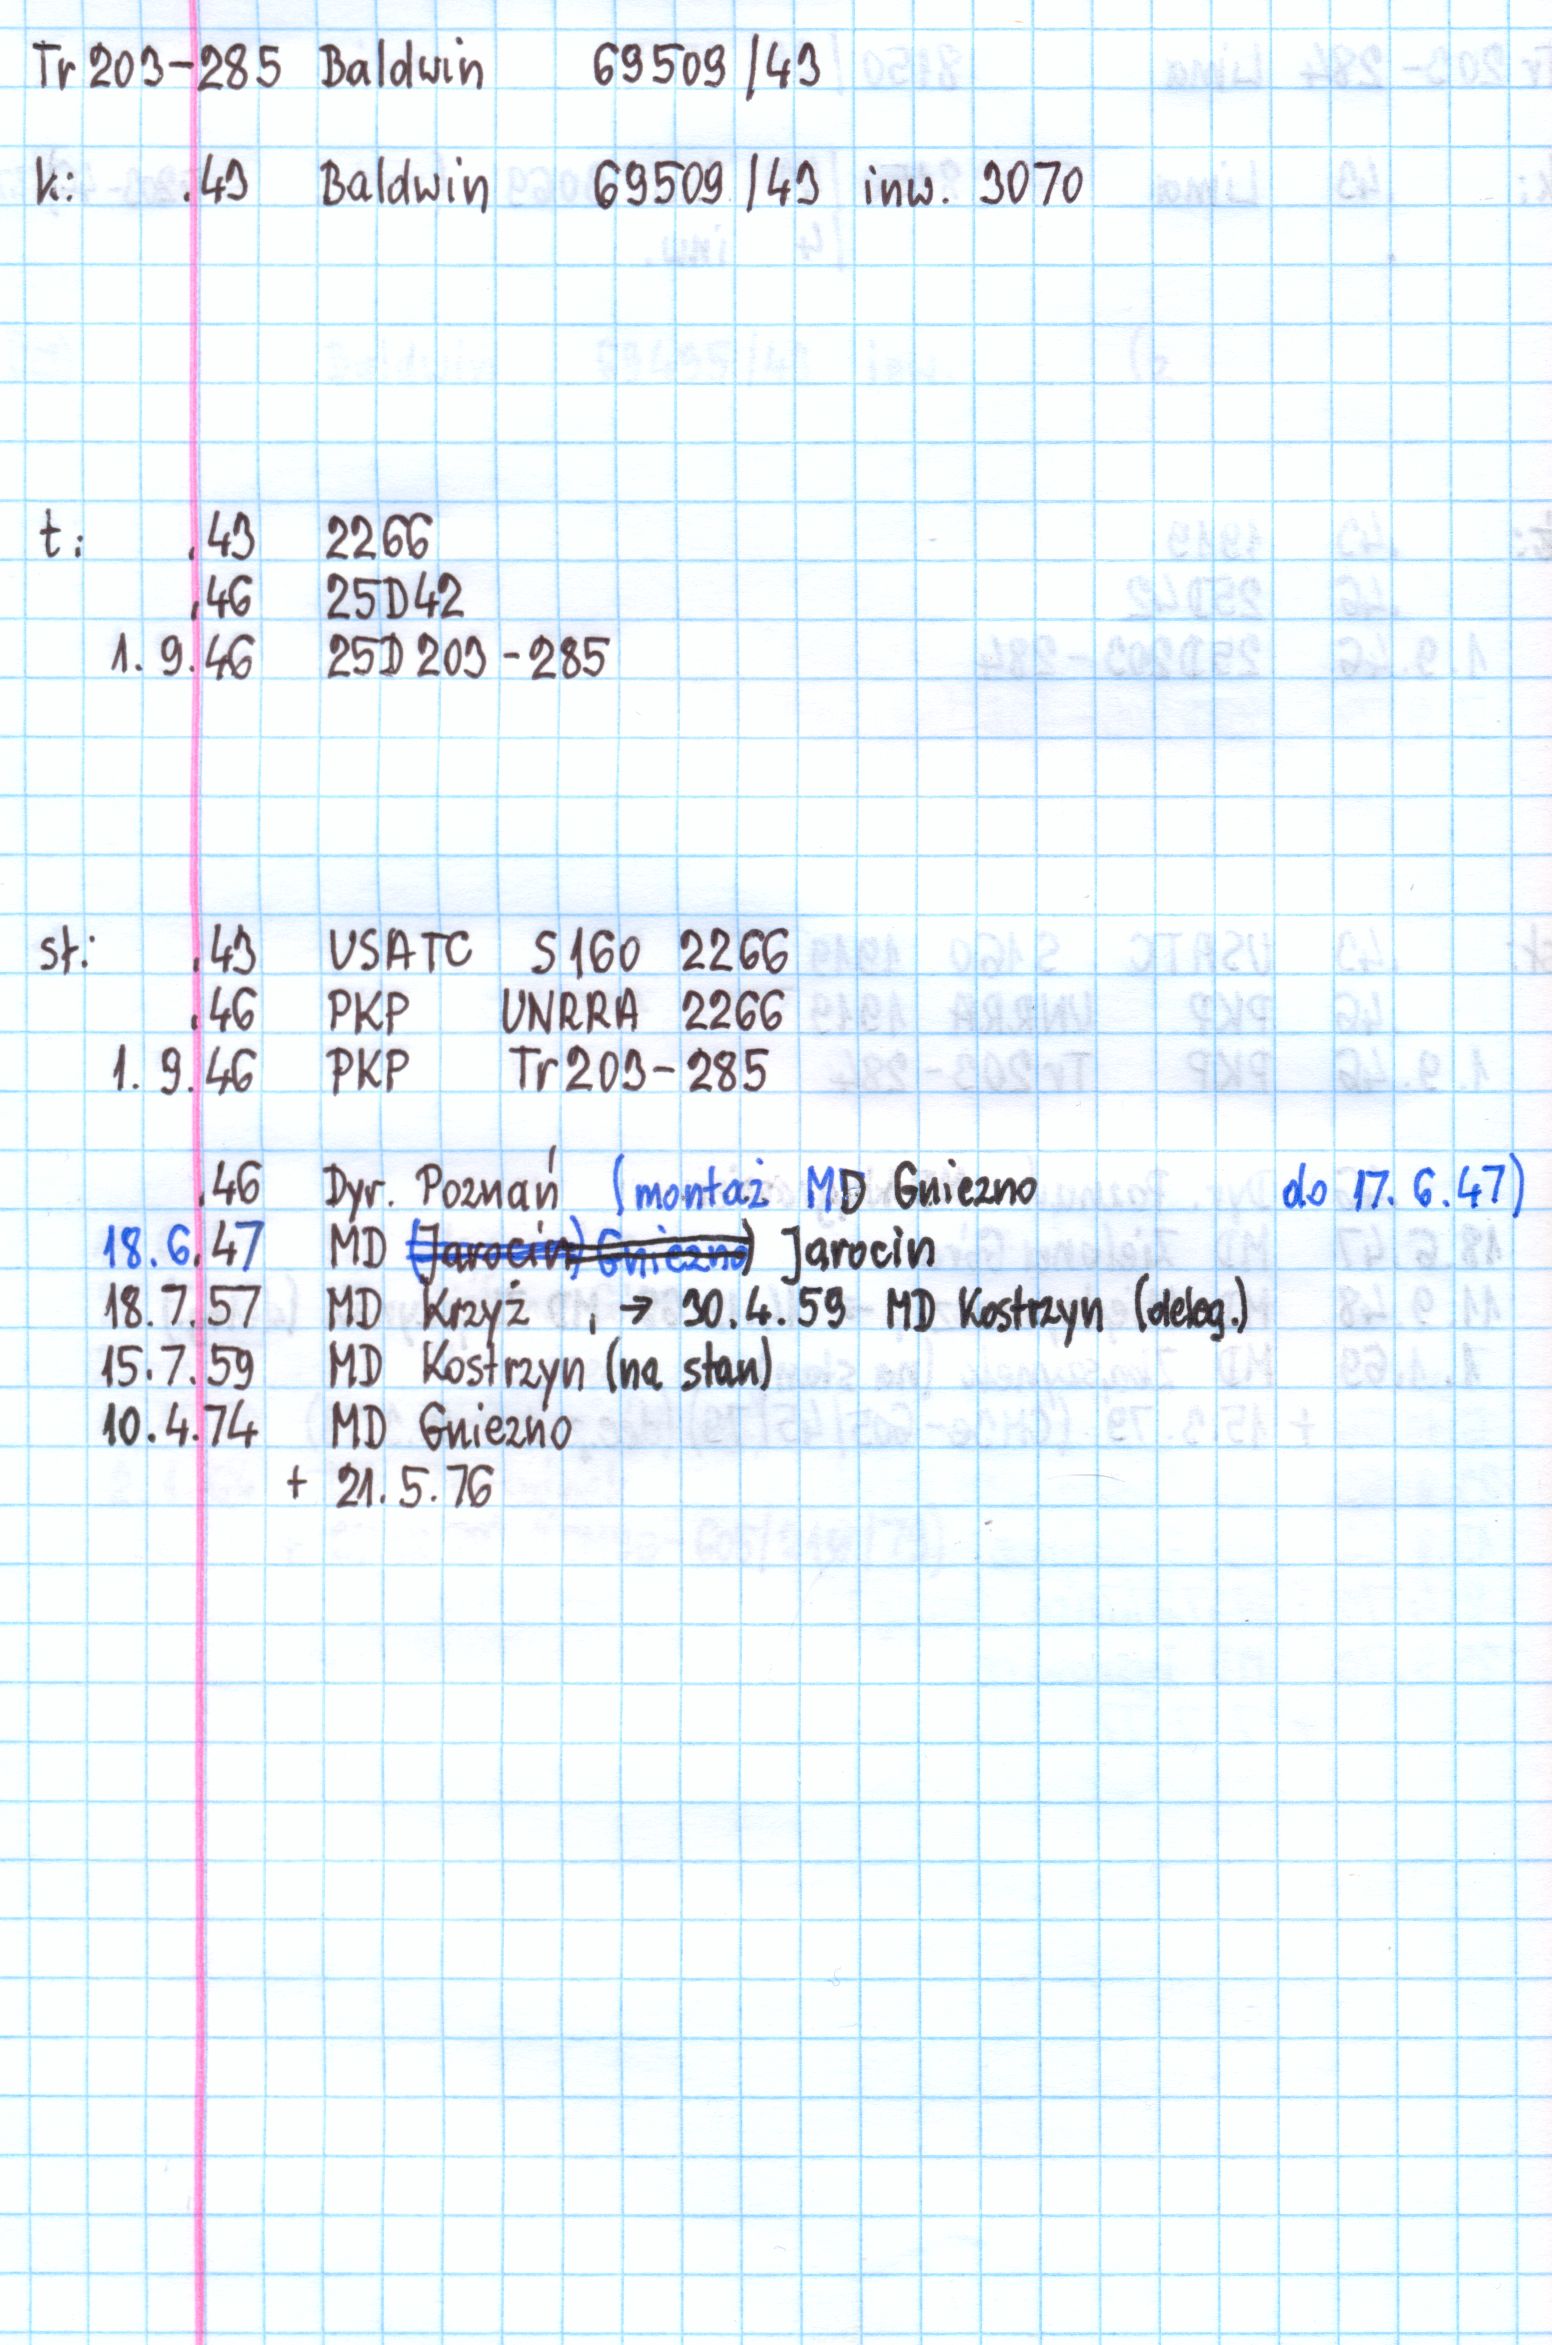 Tr 203-285 Baldwin 69509/43
k: .43 Baldwin 69509/43 inw. 3070
t: .43 2266
.46 25D42
1. 9.46 25D203-285
st: .43 USATC S160 2266
.46 PKP UNRRA 2266
1. 9.46 PKP Tr203-285
.46 Dyr. Poznań (montaż MD Gniezno do 17. 6.47)
18.6.47 MD (Jarocin) Gniezno) Jarocin
18.7.57 MD Krzyż , → 30.4.59 MD Kostrzyn (deleg.)
15.7.59 MD Kostrzyn (na stan)
10.4.74 MD Gniezno
+ 21.5.76